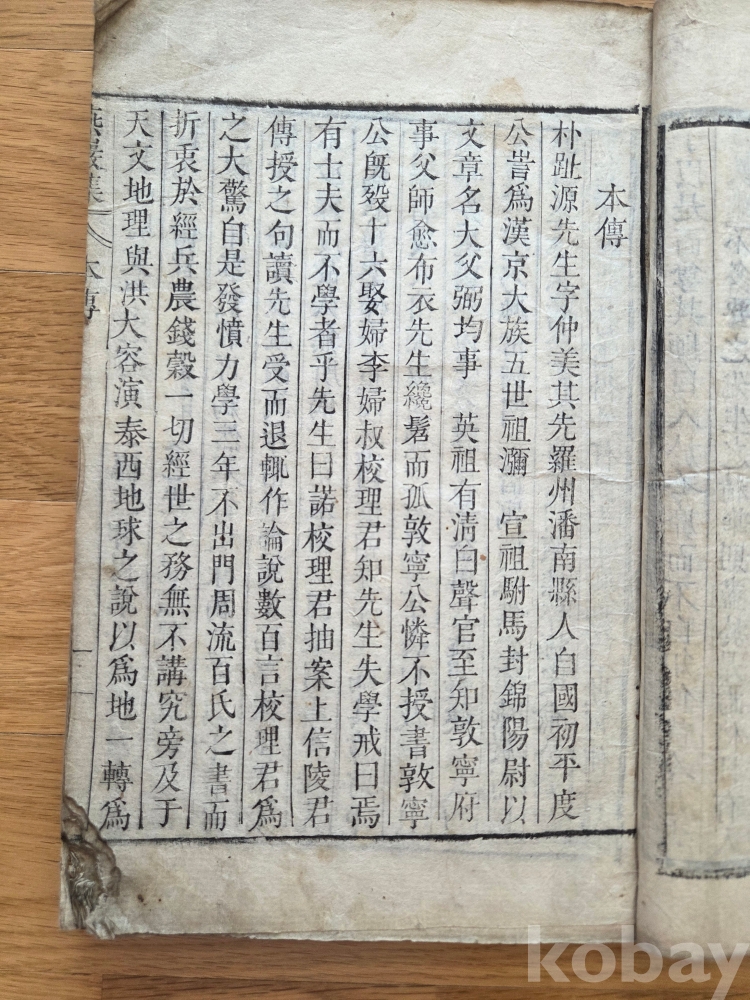 本傳
朴趾源先生字仲美其先羅州潘南縣人自國初平度
公訔爲漢京大族五世祖瀰 宣祖駙馬封錦陽尉以
文章名大父弼均事 英祖有淸白聲官至知敦寧府
事父師愈布衣先生纔髫而孤敦寧公憐不授書敦寧
公旣歿十六娶婦李婦叔校理君知先生失學戒曰焉
有士夫而不學者乎先生曰諾校理君抽案上信陵君
傳授之句讀先生受而退輒作論說數百言校理君爲
之大驚自是發憤力學三年不出門周流百氏之書而
折衷於經兵農錢穀一切經世之務無不講究旁及于
天文地理與洪大容演泰西地球之說以爲地一轉爲
燕巖集 本傳 一
kobay